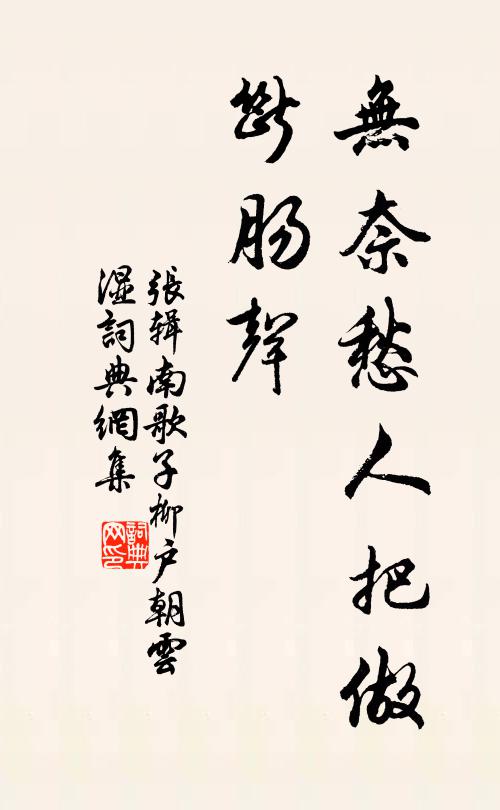 無奈愁人把做
斷腸聲
張辑南歌子柳户朝雲
濕詞典網集
詞典
网印